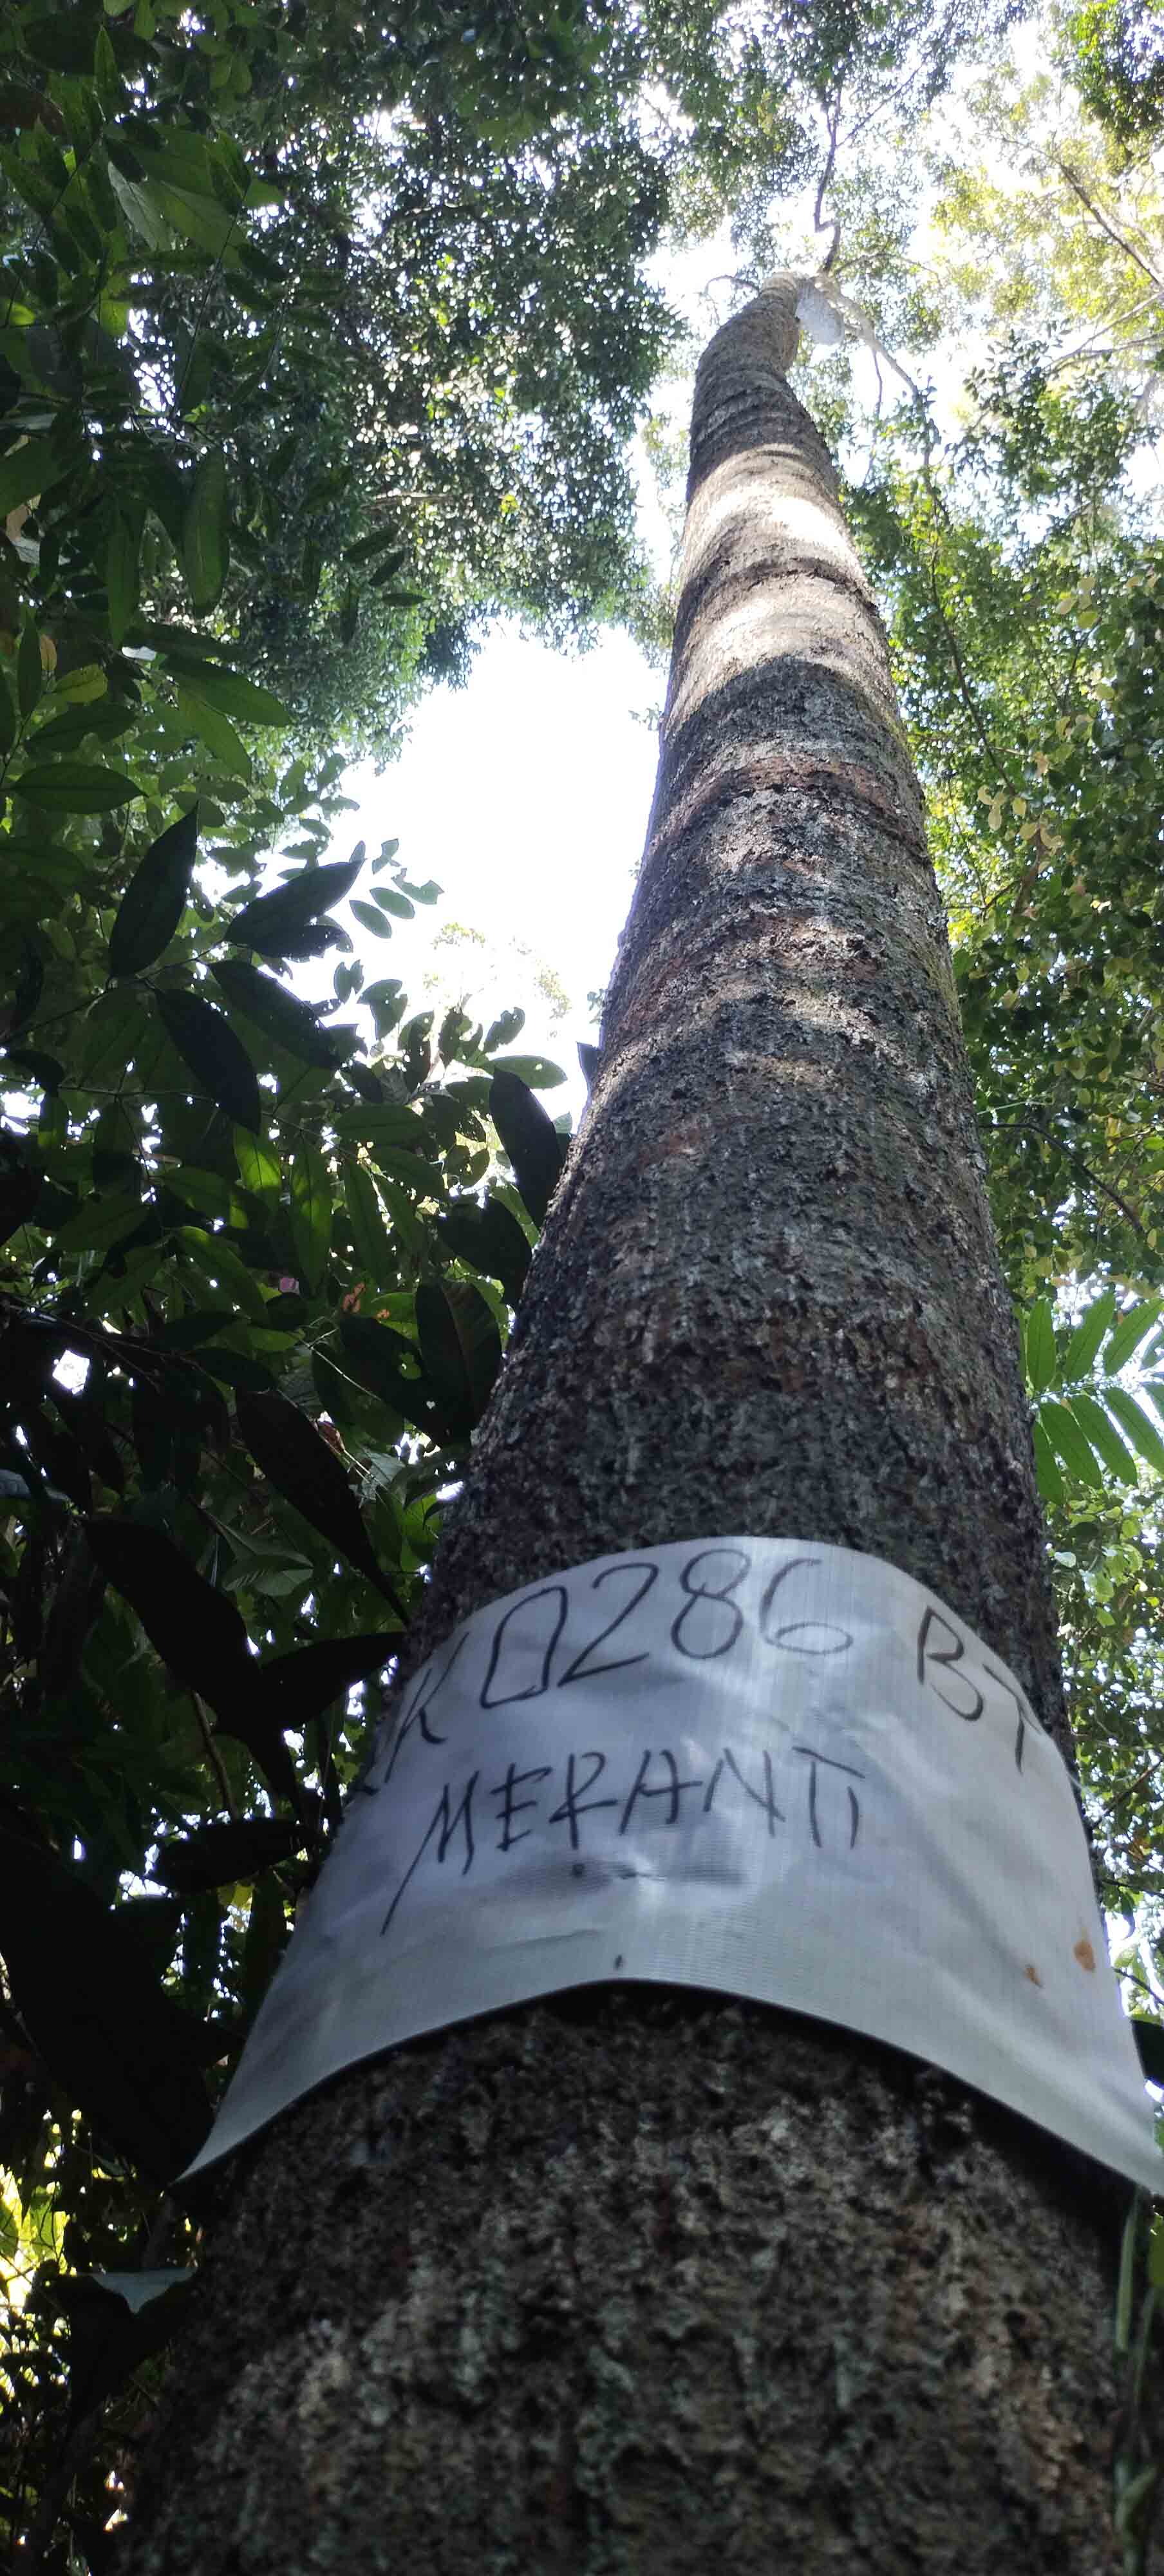 K0286 BT
MERANTI